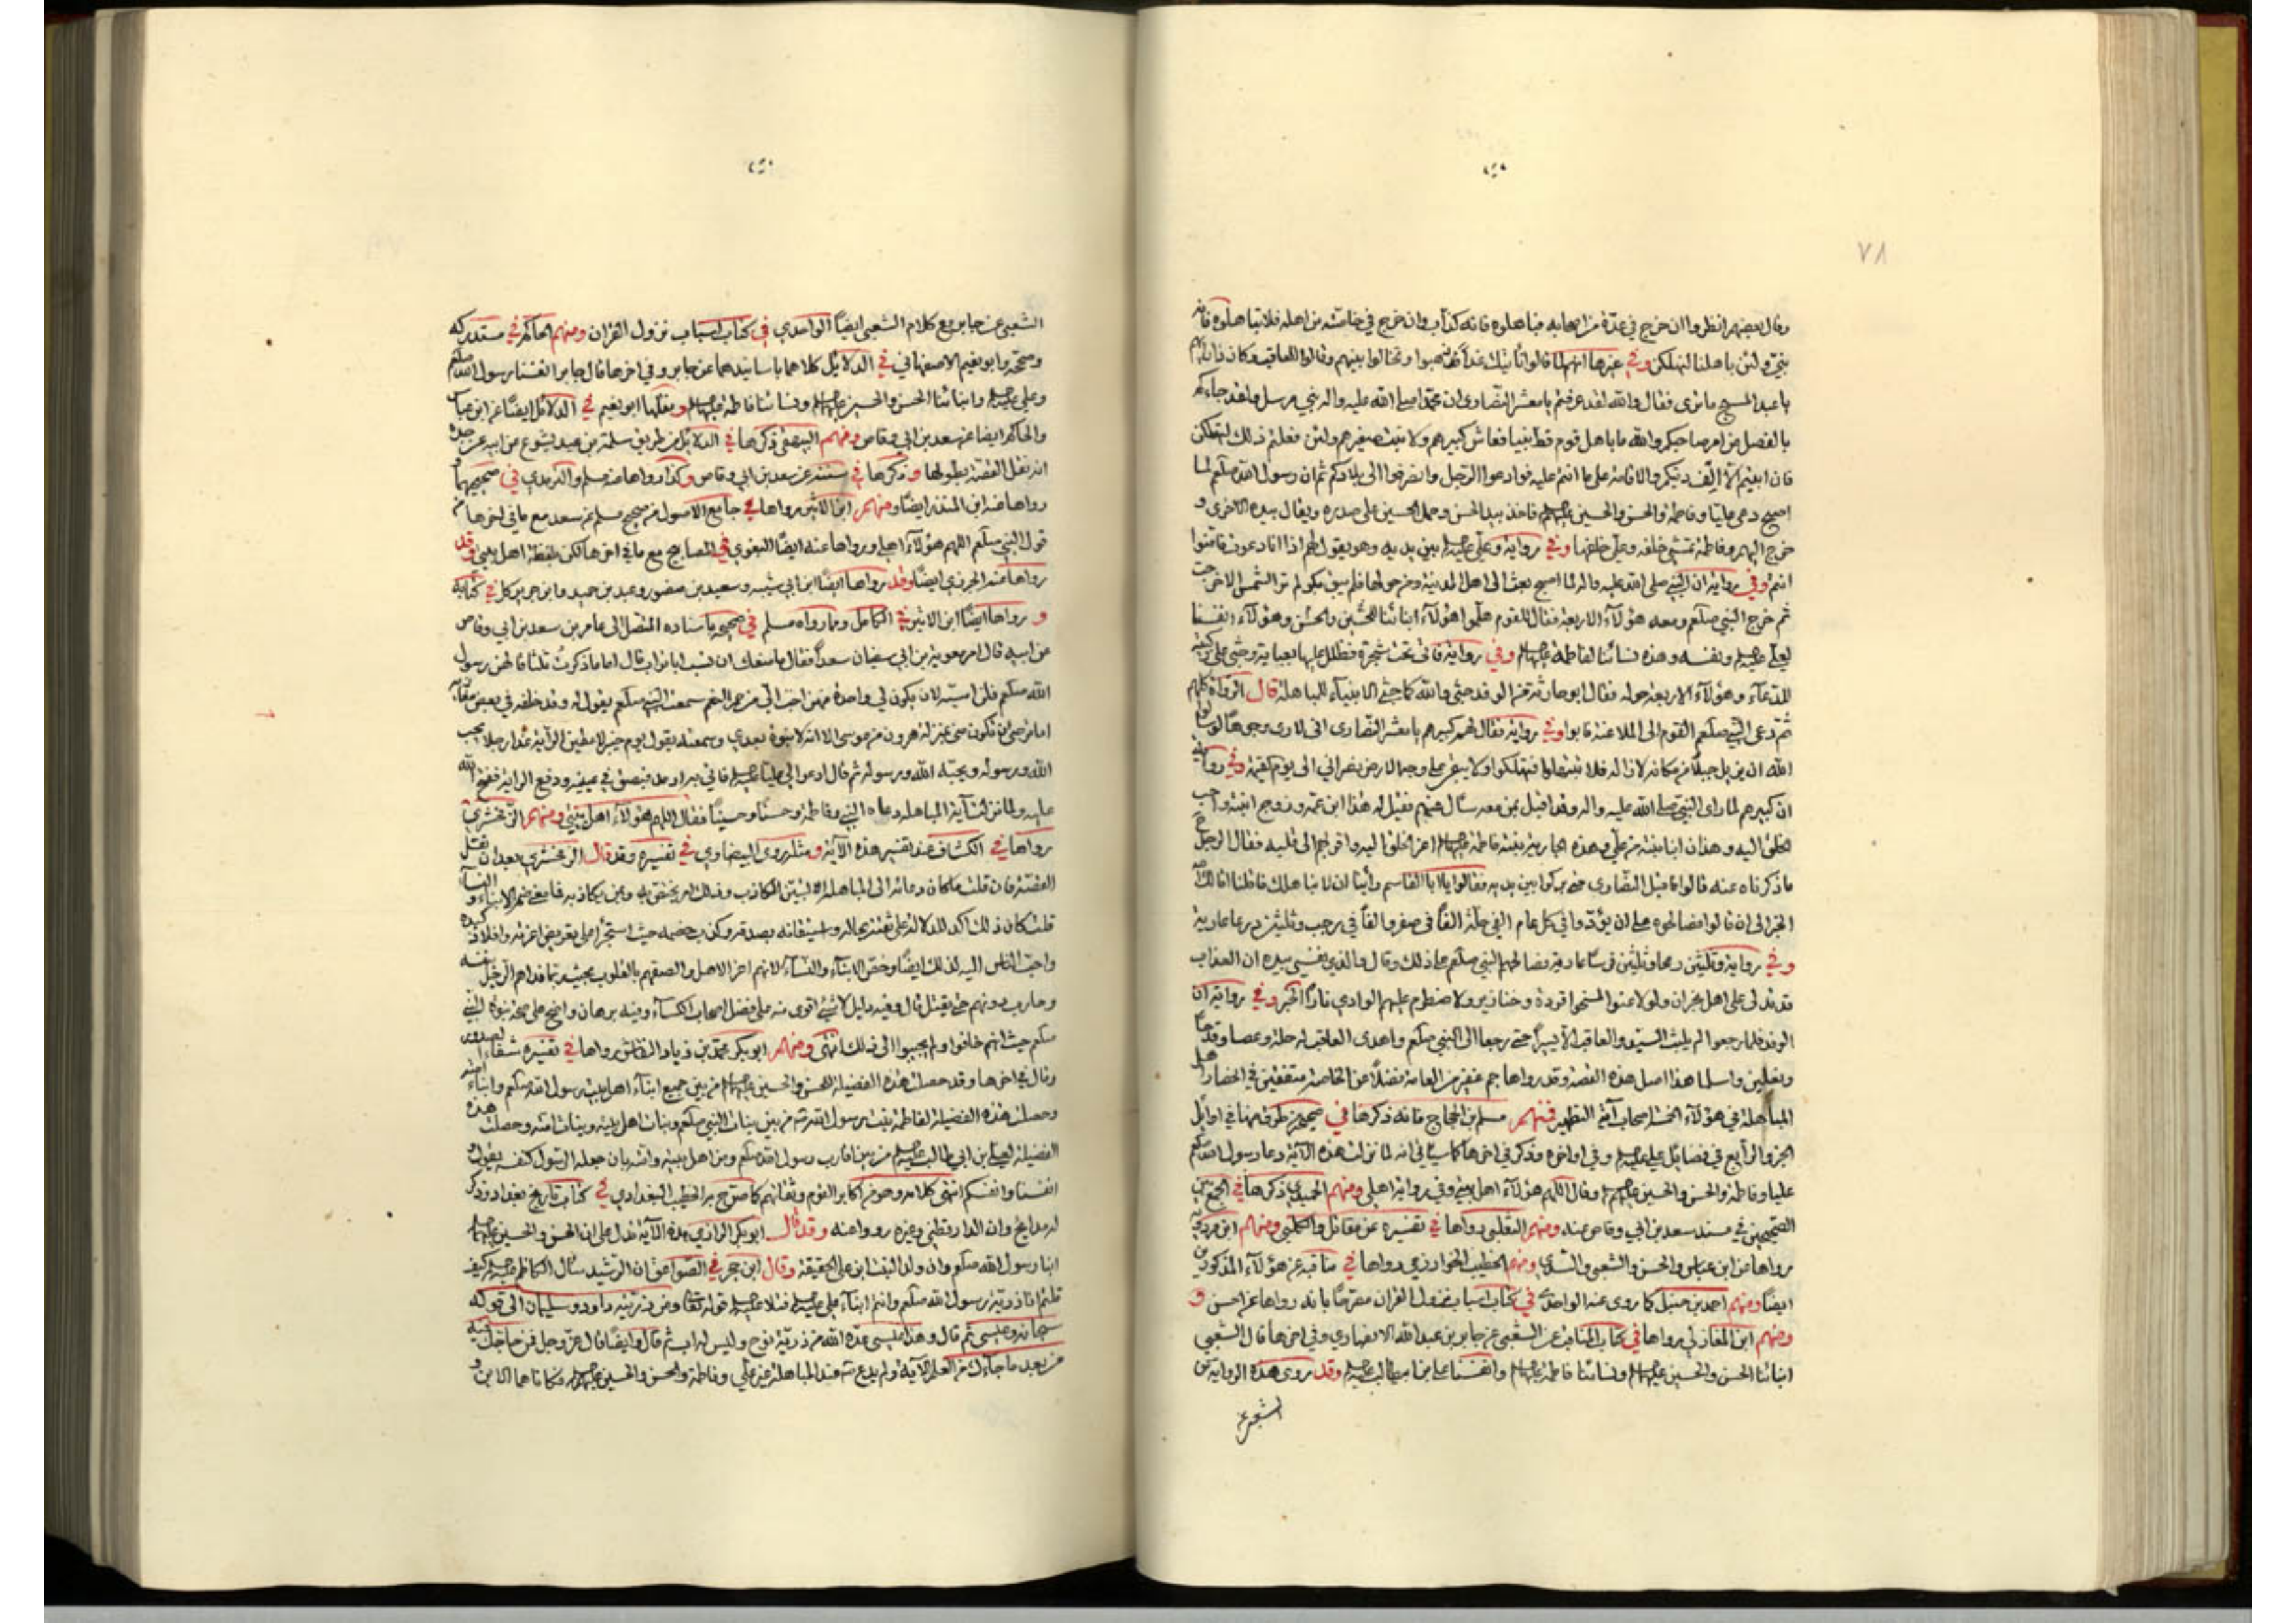 ٧٨
وقال بعضهم انظروا ان خرج في عدّة من اصحابه فباهلوه فانه كذاب وان خرج في خاصّته من اهله فلا تباهلوه فانه
نبيّ ولئن باهلنا لنهلكن وفي غيرها انهم قالوا نأتيك غداً فذهبوا وتخالوا بينهم وقالوا للعاقب وكان ذا رأيهم
يا عبد المسيح ما ترى فقال والله لقد عرفتم يا معشر النصارى ان محمّدا صلى الله عليه واله نبي مرسل ولقد جاءكم
بالفصل من امر صاحبكم والله ما باهل قوم قط نبيا فعاش كبيرهم ولا نبت صغيرهم ولئن فعلتم ذلك لتهلكن
فان ابيتم الا الف دينكم والاقامة على ما انتم عليه فوادعوا الرّجل وانصرفوا الى بلادكم ثم ان رسول الله صلعم لما
اصبح دعى عليّا وفاطمة والحسن والحسين فاخذ بيد الحسن وحمل الحسين على صدره ويقال بيده الاخرى و
خرج اليهم وفاطمة تمشي خلفه وعلي خلفها وفي رواية وعلي بين يديه وهو يقول لهم اذا انا دعوت فامنوا
انتم وفي رواية ان النبي صلى الله عليه واله لما اصبح بعث الى اهل المدينة ومن حولها فلم يبق بكر لم تر الشمس الا خرجت
ثم خرج النبي صلعم ومعه هؤلاء الاربعة فقال للقوم هلموا هؤلاء ابنائنا للحسين والحسن وهؤلاء انفسنا
لعلي ونفسه وهذه نسائنا لفاطمة وفي رواية فاتى تحت شجرة فظلل عليها بعباية وجثى على ركبتيه
للدعاء وهؤلاء الاربعة حوله فقال ابو حارثة من الوفد جثى والله كما جثى الانبياء للمباهلة قال الرواة كلهم
ثم دعى النبي صلعم القوم الى الملاعنة فابوا وفي رواية فقال لهم كبيرهم يا معشر النصارى انى لارى وجوها لو سألوا
الله ان يزيل جبلا من مكانه لازاله فلا تبتهلوا فتهلكوا ولا يبقى على وجه الارض نصراني الى يوم القيمة وفي رواية
ان كبيرهم لما راى النبي صلى الله عليه واله وقد اقبل بمن معه سأل عنهم فقيل له هذا ابن عمّه وزوج ابنته واحب
الخلق اليه وهذان ابنا بنته من علي وهذه الجارية بنته فاطمة اعز الخلق اليه واقربهم الى قلبه فقال الرجل
ما ذكرناه عنه قالوا فاقبل النصارى حتى بركوا بين يديه فقالوا يا ابا القاسم رأينا ان لا نباهلك فاقلنا اقالك الله
الخبر الى ان قالوا فصالحوه على ان يؤدّوا في كل عام الفي حلّة الفاً في صفر والفاً في رجب وثلثين درعا عارية
وفي رواية وثلثين رمحا وثلثين فرسا عارية فصالحهم النبي صلعم على ذلك وقال والذي نفسي بيده ان العذاب
قد تدلى على اهل نجران ولو لاعنوا لمسخوا قردة وخنازير ولاضطرم عليهم الوادي نارًا الخبر وفي رواية ان
الوفد فلما رجعوا لم يلبث السيّد والعاقب الا يسيراً حتى رجعا الى النبي صلعم واهدى العاقب له حلة وعصا وقدحاً
ونعلين واسلما هذا اصل هذه القصة وقد رواها جم غفير من العامة فضلًا عن الخاصة متفقين في انحصار اهل
المباهلة في هؤلاء الخمسة اصحاب آية التطهير فمنهم مسلم بن الحجاج فانه ذكرها في صحيحه من طرق منها في اوائل
الجزء الرابع في فضائل علي وفي اواخره وذكر في اخرها كما سيأتي انه لما نزلت هذه الآية دعا رسول الله صلعم
عليا وفاطمة والحسن والحسين وقال اللهم هؤلاء اهل بيتي وفي رواية اهلي ومنهم الحميدي ذكرها في الجمع بين
الصّحيحين في مسند سعد بن ابي وقاص عنه ومنهم الثعلبي رواها في تفسيره عن مقاتل والكلبي ومنهم ابن مردويه
رواها عن ابن عباس والحسن والشعبي والسّدي ومنهم الخطيب الخوارزمي رواها في مناقبه عن هؤلاء المذكورين
ايضًا ومنهم احمد بن حنبل كما روى عنه الواحدي في كتاب اسباب نزول القران مصرّحًا بانه رواها عن الحسن و
ومنهم ابن المغازلي رواها في كتاب المناقب عن الشعبي عن جابر بن عبد الله الانصاري وفي اخرها قال الشعبي
ابنائنا الحسن والحسين ونسائنا فاطمة وانفسنا علي بن ابيطالب وقد روى هذه الرواية عن
الشعبي عن
الشعبي عن جابر مع كلام الشعبي ايضًا الواحدي في كتاب اسباب نزول القران ومنهم الحاكم في مستدركه
وصحّحه وابو نعيم الاصفهاني في الدلايل كلاهما باسانيدهما عن جابر وفي اخرها قال جابر انفسنا رسول الله صلعم
وعلي وابنائنا الحسن والحسين ونسائنا فاطمة ونقلها ابو نعيم في الدلائل ايضًا عن ابن عباس
والحاكم ايضا عن سعد بن ابي وقاص ومنهم البيهقي ذكرها في الدلائل من طريق سلمة بن عبد يشوع عن ابيه عن جده
انه نقل القصّة بطولها وذكرها في سننه عن سعد بن ابي وقاص وكذا رواها عنه مسلم والترمذي في صحيحيهما و
رواها عنه ابن المنذر ايضًا ومنهم ابن الاثير رواها في جامع الاصول من صحيح مسلم عن سعد مع ما في اخرها من
قول النبي صلعم اللهم هؤلاء اهلي ورواها عنه ايضًا البغوي في المصابيح مع ما في اخرها لكن بلفظة اهل بيتي وقد
رواها عنه الجزري ايضًا وقد رواها ايضًا ابن ابي شيبه وسعيد بن منصور وعبد بن حميد وابن جرير كل في كتابه
و رواها ايضًا ابن الاثير في الكامل وما رواه مسلم في صحيحه باسناده المتصل الى عامر بن سعد بن ابي وقاص
عن ابيه قال امر معوية بن ابي سفيان سعداً فقال ما منعك ان تسب ابا تراب قال اما ما ذكرتُ ثلثا قالهن رسول
الله صلعم فلن اسبّه لان يكون لي واحدة منهن احبّ اليّ من حمر النعم سمعت النبي صلعم يقول له وقد خلفه في بعض مغازيه
اما ترضى ان تكون مني بمنزلة هرون من موسى الا انه لا نبوة بعدي وسمعته يقول يوم خيبر لاعطين الراية غدا رجلا يحب
الله ورسوله ويحبّه الله ورسوله ثم قال ادعوا لي عليا فاتي به ارمد فبصق في عينيه ودفع الراية ففتح الله
عليه ولما نزلت آية المباهلة دعاه النبي وفاطمة وحسنًا وحسينًا فقال اللهم هؤلاء اهل بيتي ومنهم الزمخشري
رواها في الكشاف عند تفسير هذه الآية ومثله روى البيضاوي في تفسيره وقد قال الزمخشري بعد ان نقل
القصّة فان قلت ما كان دعائه الى المباهلة الا ليتبيّن الكاذب وذلك امر يختص به وبمن يكاذبه فما معنى ضم الابناء والنساء
قلت كان ذلك آكد للدلالة على ثقته بحاله واستيقانه بصدقه وكذب خصمه حيث استجرأ على تعريض اعزته وافلاذ كبده
واحب الناس اليه لذلك ايضًا وخصّ الابناء والنساء لانهم اعز الاهل والصقهم بالقلوب بحيث ربما فداهم الرجل بنفسه
وحارب دونهم حتى يقتل قال وفيه دليل لا شئ اقوى منه على فضل اصحاب الكساء وفيه برهان واضح على صحة نبوة النبي
صلعم حيث انهم خافوا ولم يجيبوا الى ذلك انتهى ومنهم ابو بكر محمّد بن زياد النقاش رواها في تفسيره شفاء الصدور
وقال في اخرها وقد حصلت هذه الفضيلة للحسن والحسين من بين جميع ابناء اهل بيت رسول الله صلعم وابناء امته
وحصلت هذه الفضيلة لفاطمة بنت رسول الله من بين بنات النبي صلعم وبنات اهل بيته وبنات امته وحصلت هذه
الفضيلة لعلي بن ابي طالب من بين اقارب رسول الله صلعم ومن اهل بيته وامته بان جعله الرسول كنفسه بقوله
انفسنا وانفسكم انتهى كلامه وهو من اكابر القوم وثقاتهم كما صرّح به الخطيب البغدادي في كتاب تاريخ بغداد وذكر
له مدايح وان الدارقطني وغيره رووا عنه وقد قال ابو بكر الرازي هذه الآية تدل على ان الحسن والحسين
ابنا رسول الله صلعم وان ولد البنت ابن على الحقيقة وقال ابن حجر في الصّواعق ان الرشيد سأل الكاظم كيف
قلتم انا ذريّة رسول الله صلعم وانتم ابناء علي فتلا قوله تعالى ومن ذريّته داود وسليمان الى قوله
سبحانه وعيسى ثم قال وهذا عيسى عدّه الله من ذرّية نوح وليس له اب ثم قال وايضًا قال عزّ وجل فمن حاجك فيه
من بعد ما جاءك من العلم الآية ولم يدع عند المباهلة غير علي وفاطمة والحسن والحسين فكانا هما الابن